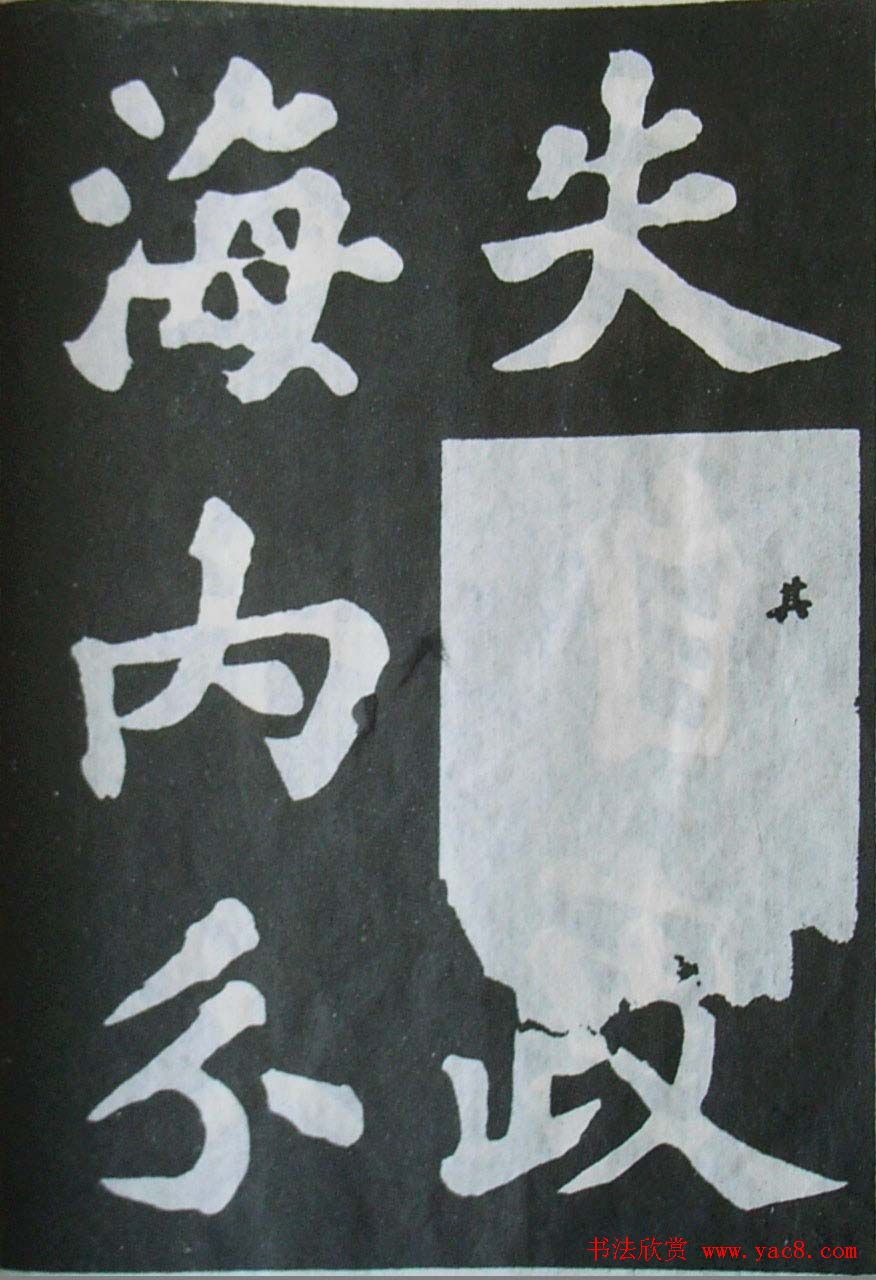 失其政
海内分
书法欣赏 www.yac8.com